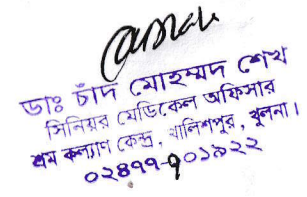 ডাঃ চাঁদ মোহম্মদ শেখ
সিনিয়র মেডিকেল অফিসার
শ্রম কল্যাণ কেন্দ্র, খালিশপুর, খুলনা।
০২৪৭৭-৭০১৯২২